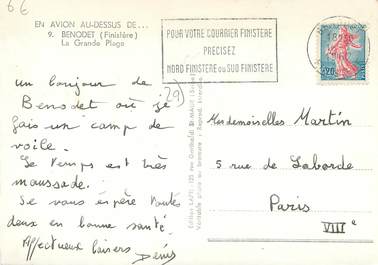 6€
EN AVION AU-DESSUS DE...
9. BENODET (Finistère)
La Grande Plage
POUR VOTRE COURRIER FINISTERE
PRECISEZ
NORD FINISTERE ou SUD FINISTERE
18
0,20
(29)
un bonjour de
Benodet où je
fais un camp de
voile.
Le temps est très
maussade.
Je vous espère toutes
deux en bonne santé.
Affectueux baisers Denis
Edition LAPIE
Véritable photo au bromure - Reprod. interdite
Mesdemoiselles Martin
5 rue de Laborde
Paris
VIIIe